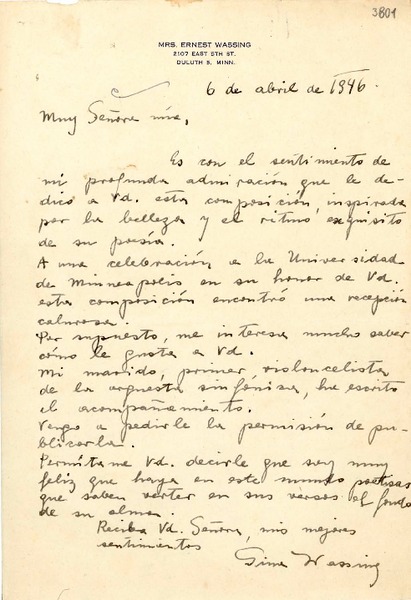 3801
MRS. ERNEST WASSING
2107 EAST 5TH ST.
DULUTH 5, MINN.
6 de abril de 1946.
Muy Señora mía,
Es con el sentimiento de
mi profunda admiración que le de-
dico a Vd. esta composición, inspirada
por la belleza y el ritmo exquisito
de su poesía.
A una celebración a la Universidad
de Minneapolis en su honor de Vd.
esta composición encontró una recepción
calurosa.
Por supuesto, me interesa mucho saber
cómo le gusta a Vd.
Mi marido, primer violoncelista
de la orquesta sinfónica, ha escrito
el acompañamiento.
Vengo a pedirle la permisión de pu-
blicarla.
Permítame Vd. decirle que soy muy
feliz que haya en este mundo poetisas
que saben verter en sus versos el fondo
de su alma.
Reciba Vd. Señora, mis mejores
sentimientos
Gina Wassing